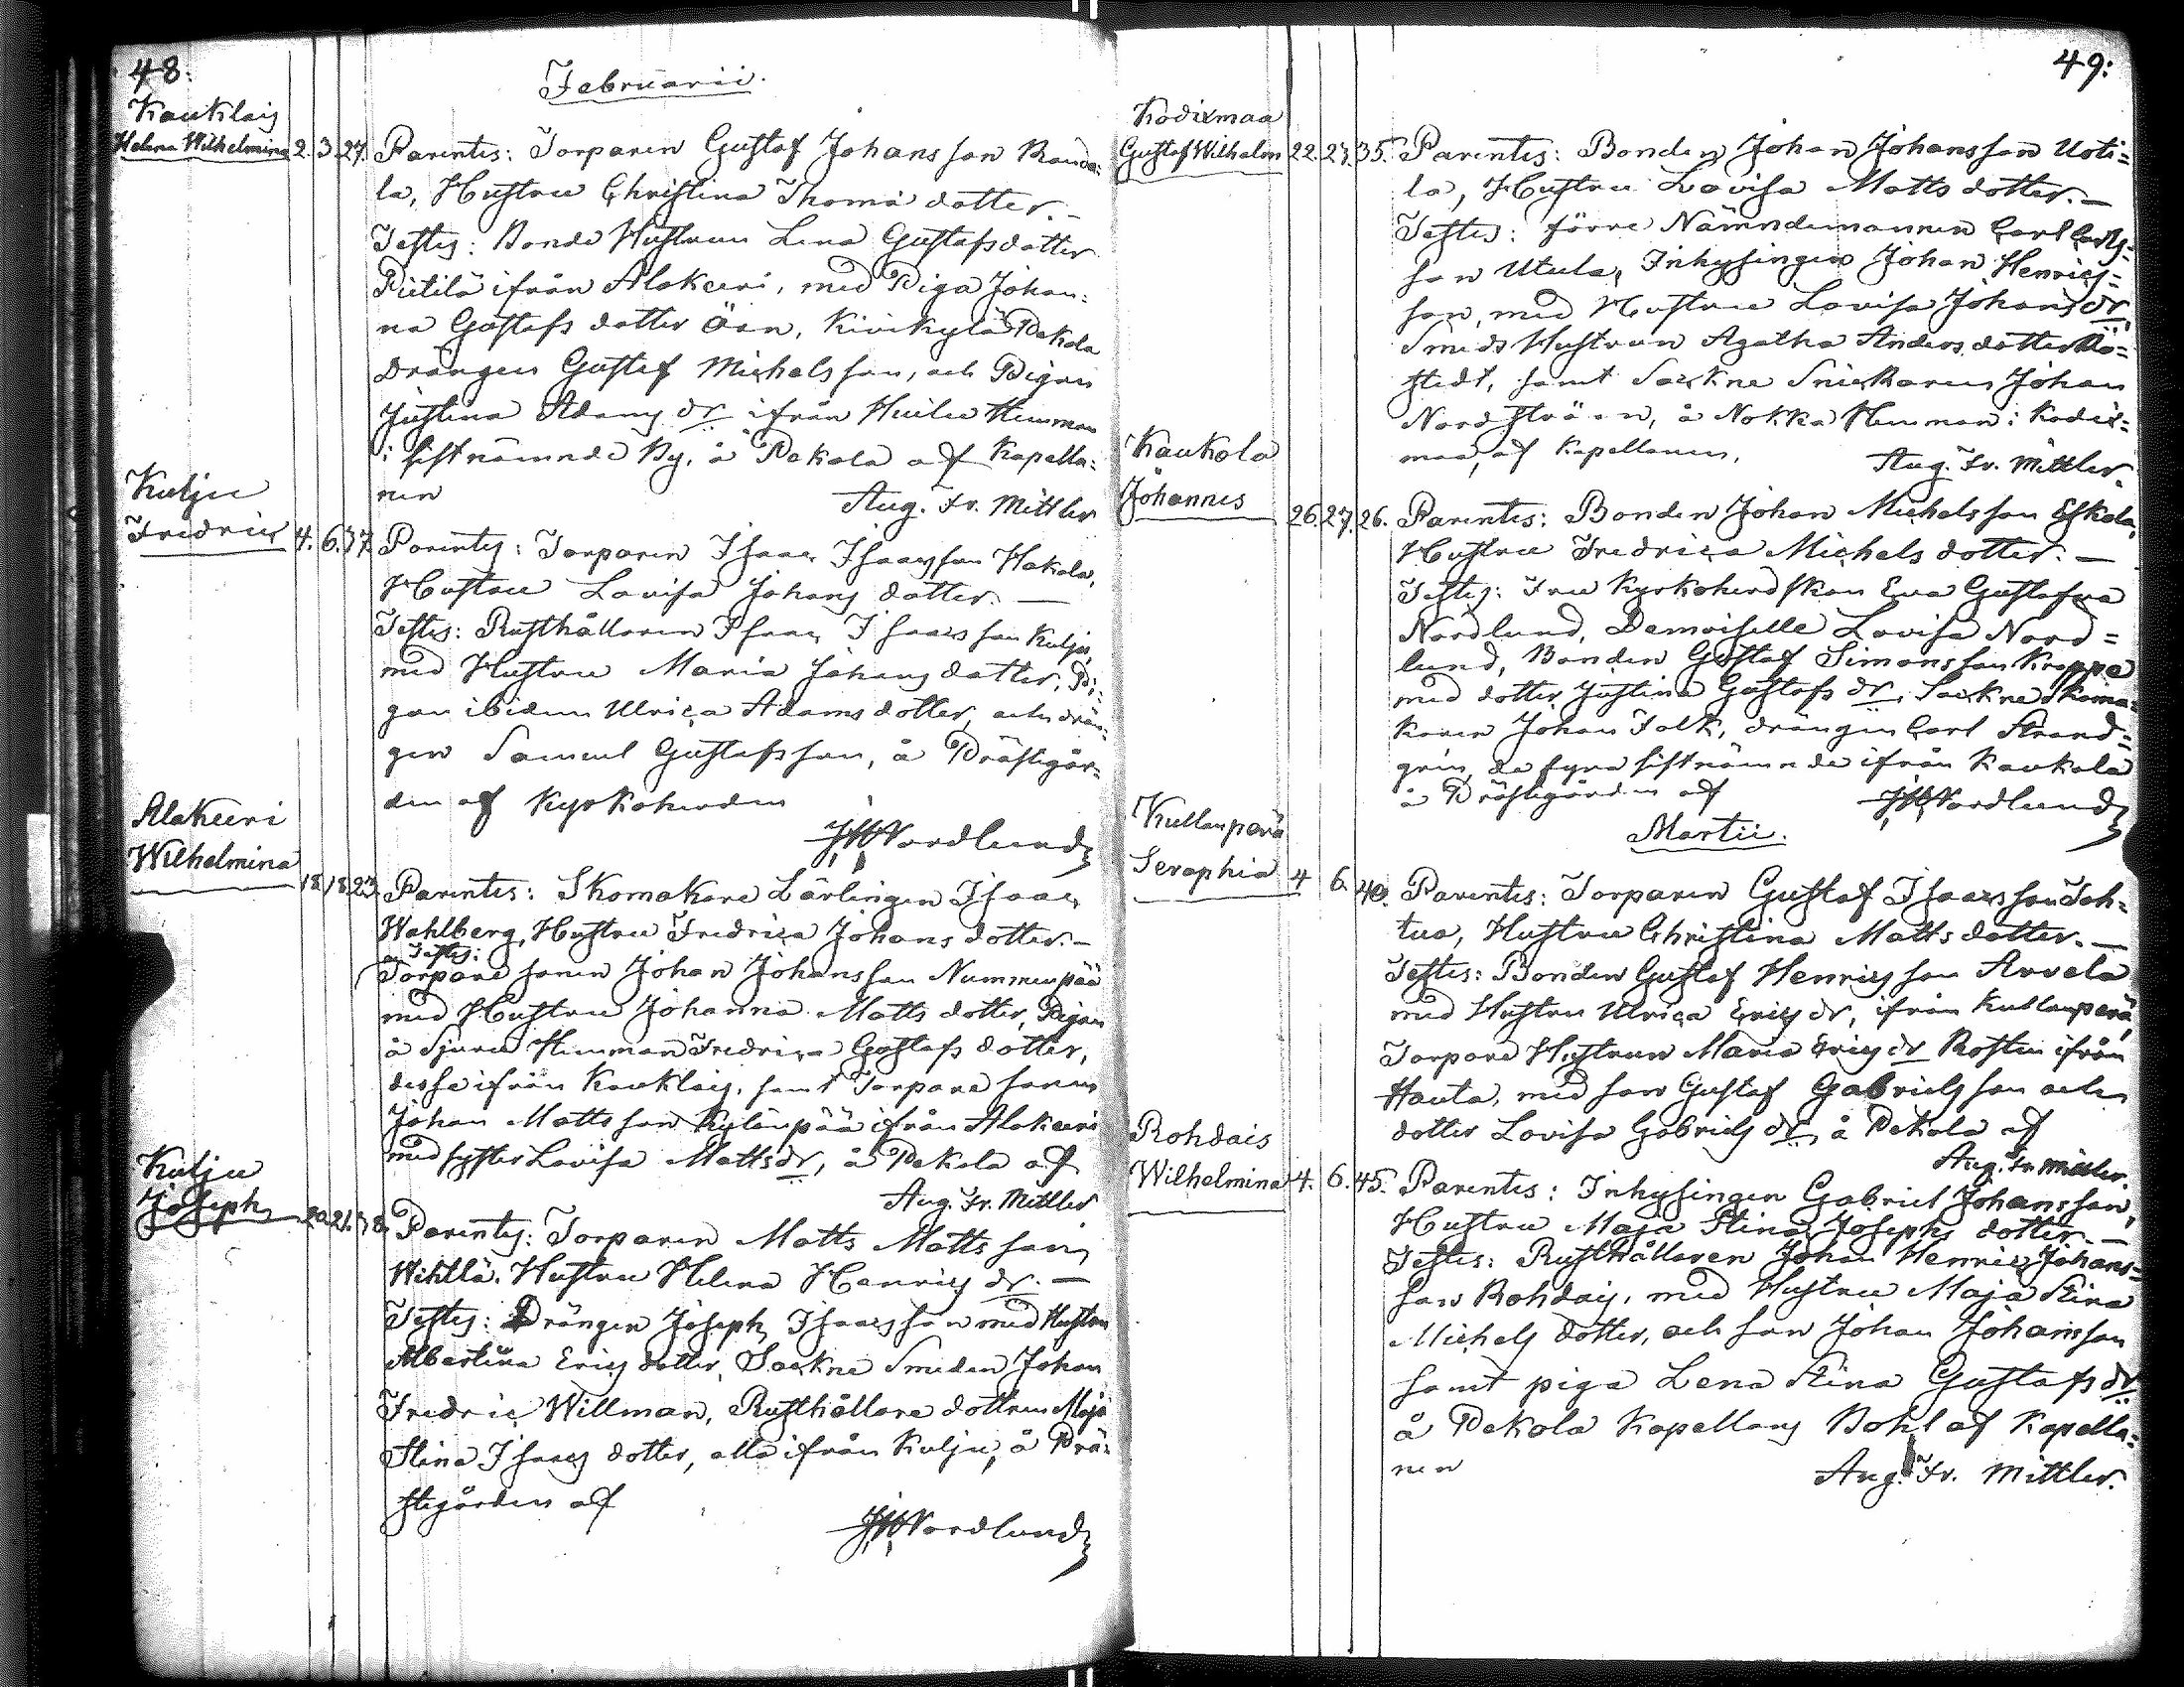 48:
Februarii.
Kauklais
Helena Wilhelmina 2. 3. 27. Parentes: Torparen Gustaf Johansson Randa-
la, Hustru Christina Thomä dotter. —
Testes: Bonde Hustrun Lena Gustafsdotter
Pietilä ifrån Alakeeri, med Piga Johan-
na Gustafs dotter Öan, Kivikylä Pekola
Drängen Gustaf Michelsson, och Pigan
Justina Adams dr ifrån Huilu Hemman
i sistnämnde By, å Pekola af Kapella-
nen
Aug. Fr. Mittler
Kulju
Fredric 4. 6. 37. Parentes: Torparen Isaac Isaacsson Hakola,
Hustru Lovisa Johans dotter. —
Testes: Rusthållaren Isaac Isaacsson Kulju,
med Hustru Maria Johans dotter, Pi-
gan ibidem Ulrica Adams dotter, och drän-
gen Samuel Gustafsson, å Prästegår-
den af Kyrkoherden
JH Nordlund
Alakeeri
Wilhelmina 18. 18. 23. Parentes: Skomakare Lärlingen Isaac
Wahlberg, Hustru Fredrica Johans dotter. —
Testes:
Torpare sonen Johan Johansson Nummenpää
med Hustru Johanna Matts dotter, Pigan
å Sjuru Hemman Fredrica Gustafs dotter,
dessa ifrån Kauklais, samt Torpare sonen
Johan Mattsson Kylänpää ifrån Alakeeri
med syster Lovisa Mattsdr, å Pekola af
Aug. Fr. Mittler
Kulju
Joseph 20. 21. 38. Parentes: Torparen Matts Mattsson
Wihtlä, Hustru Helena Henrics dr. —
Testes: Drängen Joseph Isaacsson med Hustru
Albertina Erics dotter, Sockne Smeden Johan
Fredric Willman, Rusthållare dottren Maja
Stina Isaacs dotter, alla ifrån Kulju, å Prä-
stegården af
JH Nordlund
49:
Kodixmaa
Gustaf Wilhelm 22. 27. 35. Parentes: Bonden Johan Johansson Uoti-
la, Hustru Lovisa Matts dotter. —
Testes: förre Nämndemannen Carl Carls-
son Utula, Inhysingen Johan Henrics-
son, med Hustru Lovisa Johans dr,
Smeds Hustrun Agatha Anders dotter
stedt, samt Sockne Snickaren Johan
Nordström, å Nokka Hemman i Kodix-
maa, af Kapellanen,
Aug. Fr. Mittler.
Kaukola
Johannes 26. 27. 26. Parentes: Bonden Johan Michelsson Eskola,
Hustru Fredrica Michels dotter. —
Testes: Fru Kyrkoherdskan Eva Gustafva
Nordlund, Demoiselle Lovisa Nord-
lund, Bonden Gustaf Simonsson Kroppa
med dotter Justina Gustafs dr, Sockne Skoma-
karen Johan Falk, drängen Carl Strand-
gren, de fyra sistnämnde ifrån Kaukola
å Prästegården af
JH Nordlund
Martii.
Kullanperä
Seraphia 4 6. 40. Parentes: Torparen Gustaf Isaacsson Toh-
tua, Hustru Christina Matts dotter. —
Testes: Bonden Gustaf Henricsson Arvela
med Hustru Ulrica Erics dr, ifrån Kullanperä,
Torpare Hustrun Maria Erics dr Rosten ifrån
Hauta, med son Gustaf Gabrielsson och
dotter Lovisa Gabriels dr, å Pekola af
Aug. Fr. Mittler.
Rohdais
Wilhelmina 4. 6. 45. Parentes: Inhysingen Gabriel Johansson,
Hustru Maja Stina Josephs dotter. —
Testes: Rusthållaren Johan Henric Johans-
son Rohdais, med Hustru Maja Stina
Michels dotter, och son Johan Johansson
samt piga Lena Stina Gustafs dr
å Pekola Kapellans Bohl af Kapella-
nen
Aug. Fr. Mittler.